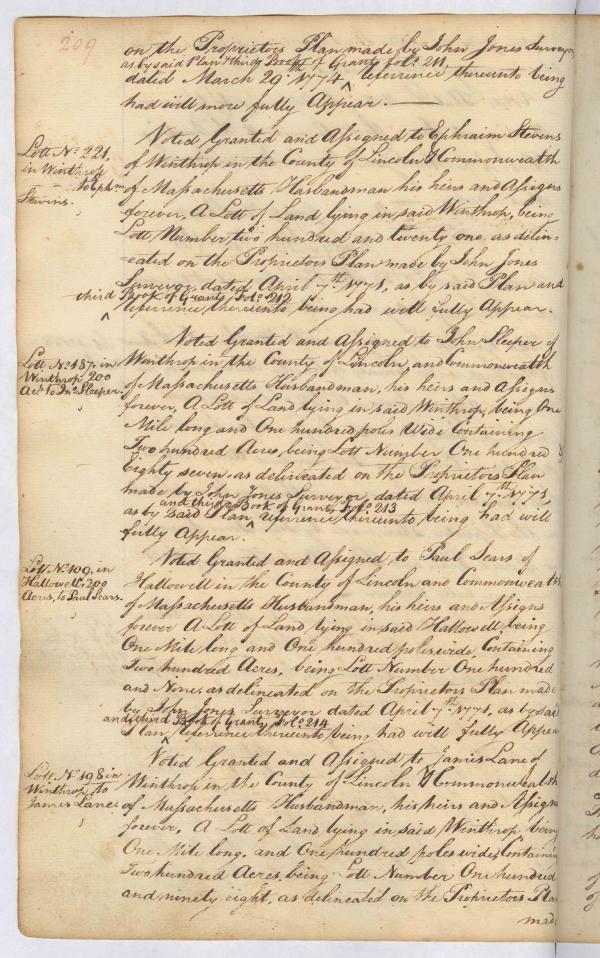 209
on the Proprietors Plan made by John Jones Surveyor
as by said Plan & third Book of Grants fol.o 211,
dated March 29.th 1774, ^ referrence thereunto being
had will more fully Appear. —
Lott N.o 221,
in Winthrop
to Ephm
Stevens.
Voted Granted and Assigned to Ephraim Stevens
of Winthrop in the County of Lincoln & Commonwealth
of Massachusetts Husbandman, his heirs and Assigns
forever, A Lott of Land lying in said Winthrop, being
Lott Number two hundred and twenty one, as delin=
=eated on the Proprietors Plan made by John Jones
Surveyor, dated April 7.th 1771, as by said Plan and
third Book of Grants, Fol.o 212
^ referrence thereunto, being had will fully Appear.
Lott N.o 187. in
Winthrop 200
Acs. to Jno. Sleeper.
Voted Granted and Assigned to John Sleeper of
Winthrop in the County of Lincoln, and Commonwealth
of Massachusetts Husbandman, his heirs and Assigns
forever, A Lott of Land lying in said Winthrop, being One
Mile long and One hundred poles Wide Containing
Two hundred Acres, being Lott Number One hundred &
Eighty seven, as delineated on the Proprietors Plan
made by John Jones Surveyor, dated April 7.th 1771,
and third Book of Grants, Fol.o 213
as by said Plan ^ referrence thereunto being had will
fully Appear.
Lott N.o 109. in
Hallowell, 200
Acres, to Paul Sears.
Voted Granted and Assigned, to Paul Sears of
Hallowell in the County of Lincoln and Commonwealth
of Massachusetts Husbandman, his heirs and Assigns
forever A Lott of Land, lying in said Hallowell, being
One Mile long and One hundred poles wide, Containing
Two hundred Acres, being Lott Number One hundred
and Nine, as delineated on the Proprietors Plan made
by John Jones Surveyor dated April 7.th 1771, as by said
and third Book of Grants, Fol.o 214
Plan ^ referrence thereunto being had will fully Appear
Lott N.o 198 in
Winthrop, to
James Lane.
Voted Granted and Assigned to James Lane of
Winthrop in the County of Lincoln & Commonwealth
of Massachusetts Husbandman, his heirs and Assigns
forever, A Lott of Land, lying in said Winthrop being
One Mile long, and One hundred poles wide, Containing
Two hundred Acres, being Lott Number One hundred
and ninety eight, as delineated on the Proprietors Plan
made